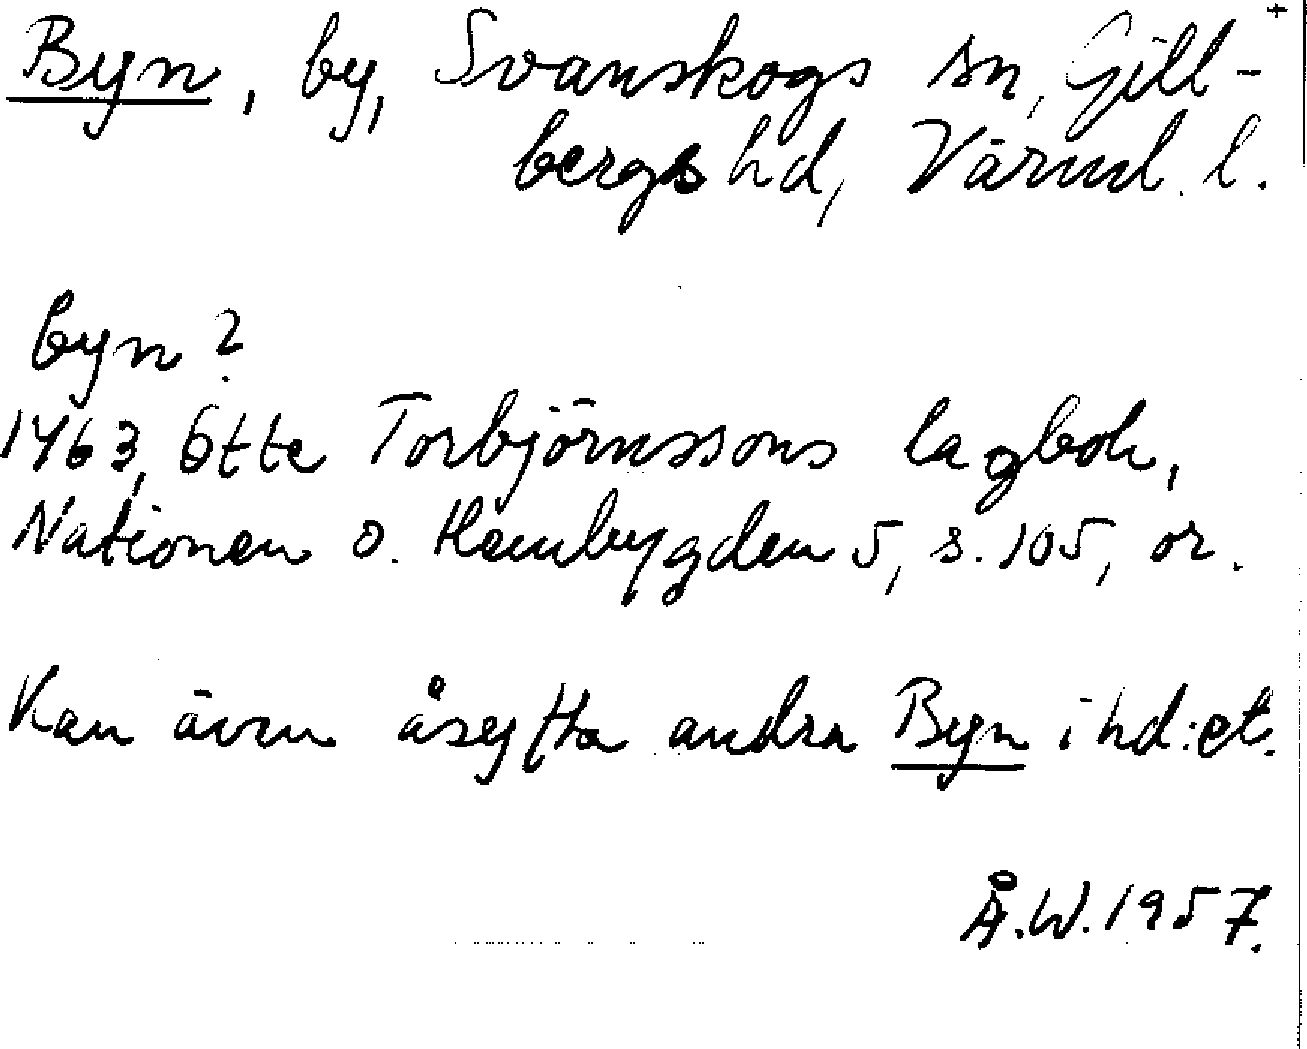 Byn, by, Svanskogs sn, Gill- +
bergs hd, Värml. l.
byn?
1463, Otte Torbjörnssons lagbok,
Nationen o. Hembygden 5, s. 105, or.
Kan även åsyfta andra Byn i hd:et.
Å.W. 1957.